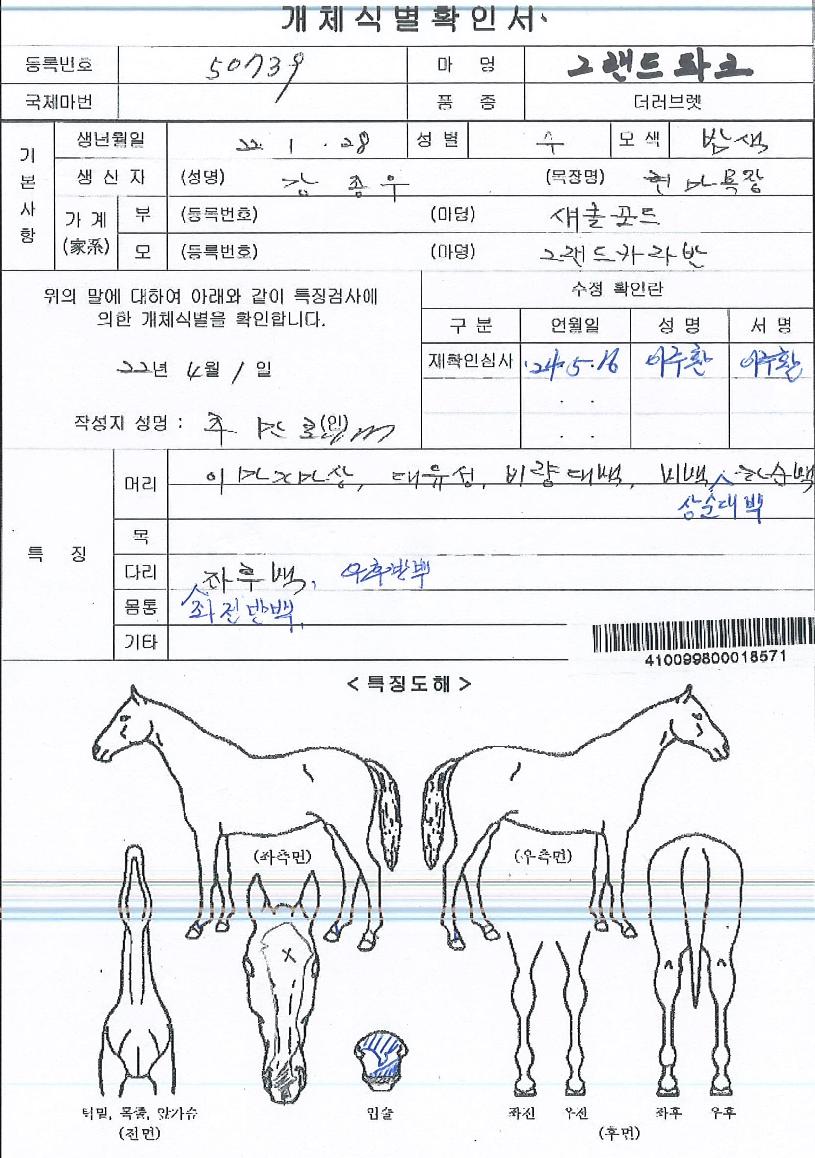 개체식별확인서
등록번호 50739 마 명 그랜드파크
국제마번 품 종 더러브렛
기본사항
생년월일 22. 1. 28 성별 수 모색 밤색
생 산 자 (성명) 강종우 (목장명) 목장
가 계 (家系) 부 (등록번호) (마명) 섀클포드
모 (등록번호) (마명) 그랜드카라반
위의 말에 대하여 아래와 같이 특징검사에
의한 개체식별을 확인합니다.
22년 4월 1일
작성자 성명 : (인)
수정 확인란
구 분 연월일 성 명 서 명
재확인심사 '24.5.16 이주환 이주환
. .
. .
특 징
머리 대유성, 비량대백, 비백, 하순백
상순대백
목
다리 좌후백, 우후반백
몸통 좌전반백,
기타
410099800018571
< 특징도해 >
(좌측면) (우측면)
턱밑, 목줄, 앞가슴 입술 좌전 우전 좌후 우후
(전면) (후면)